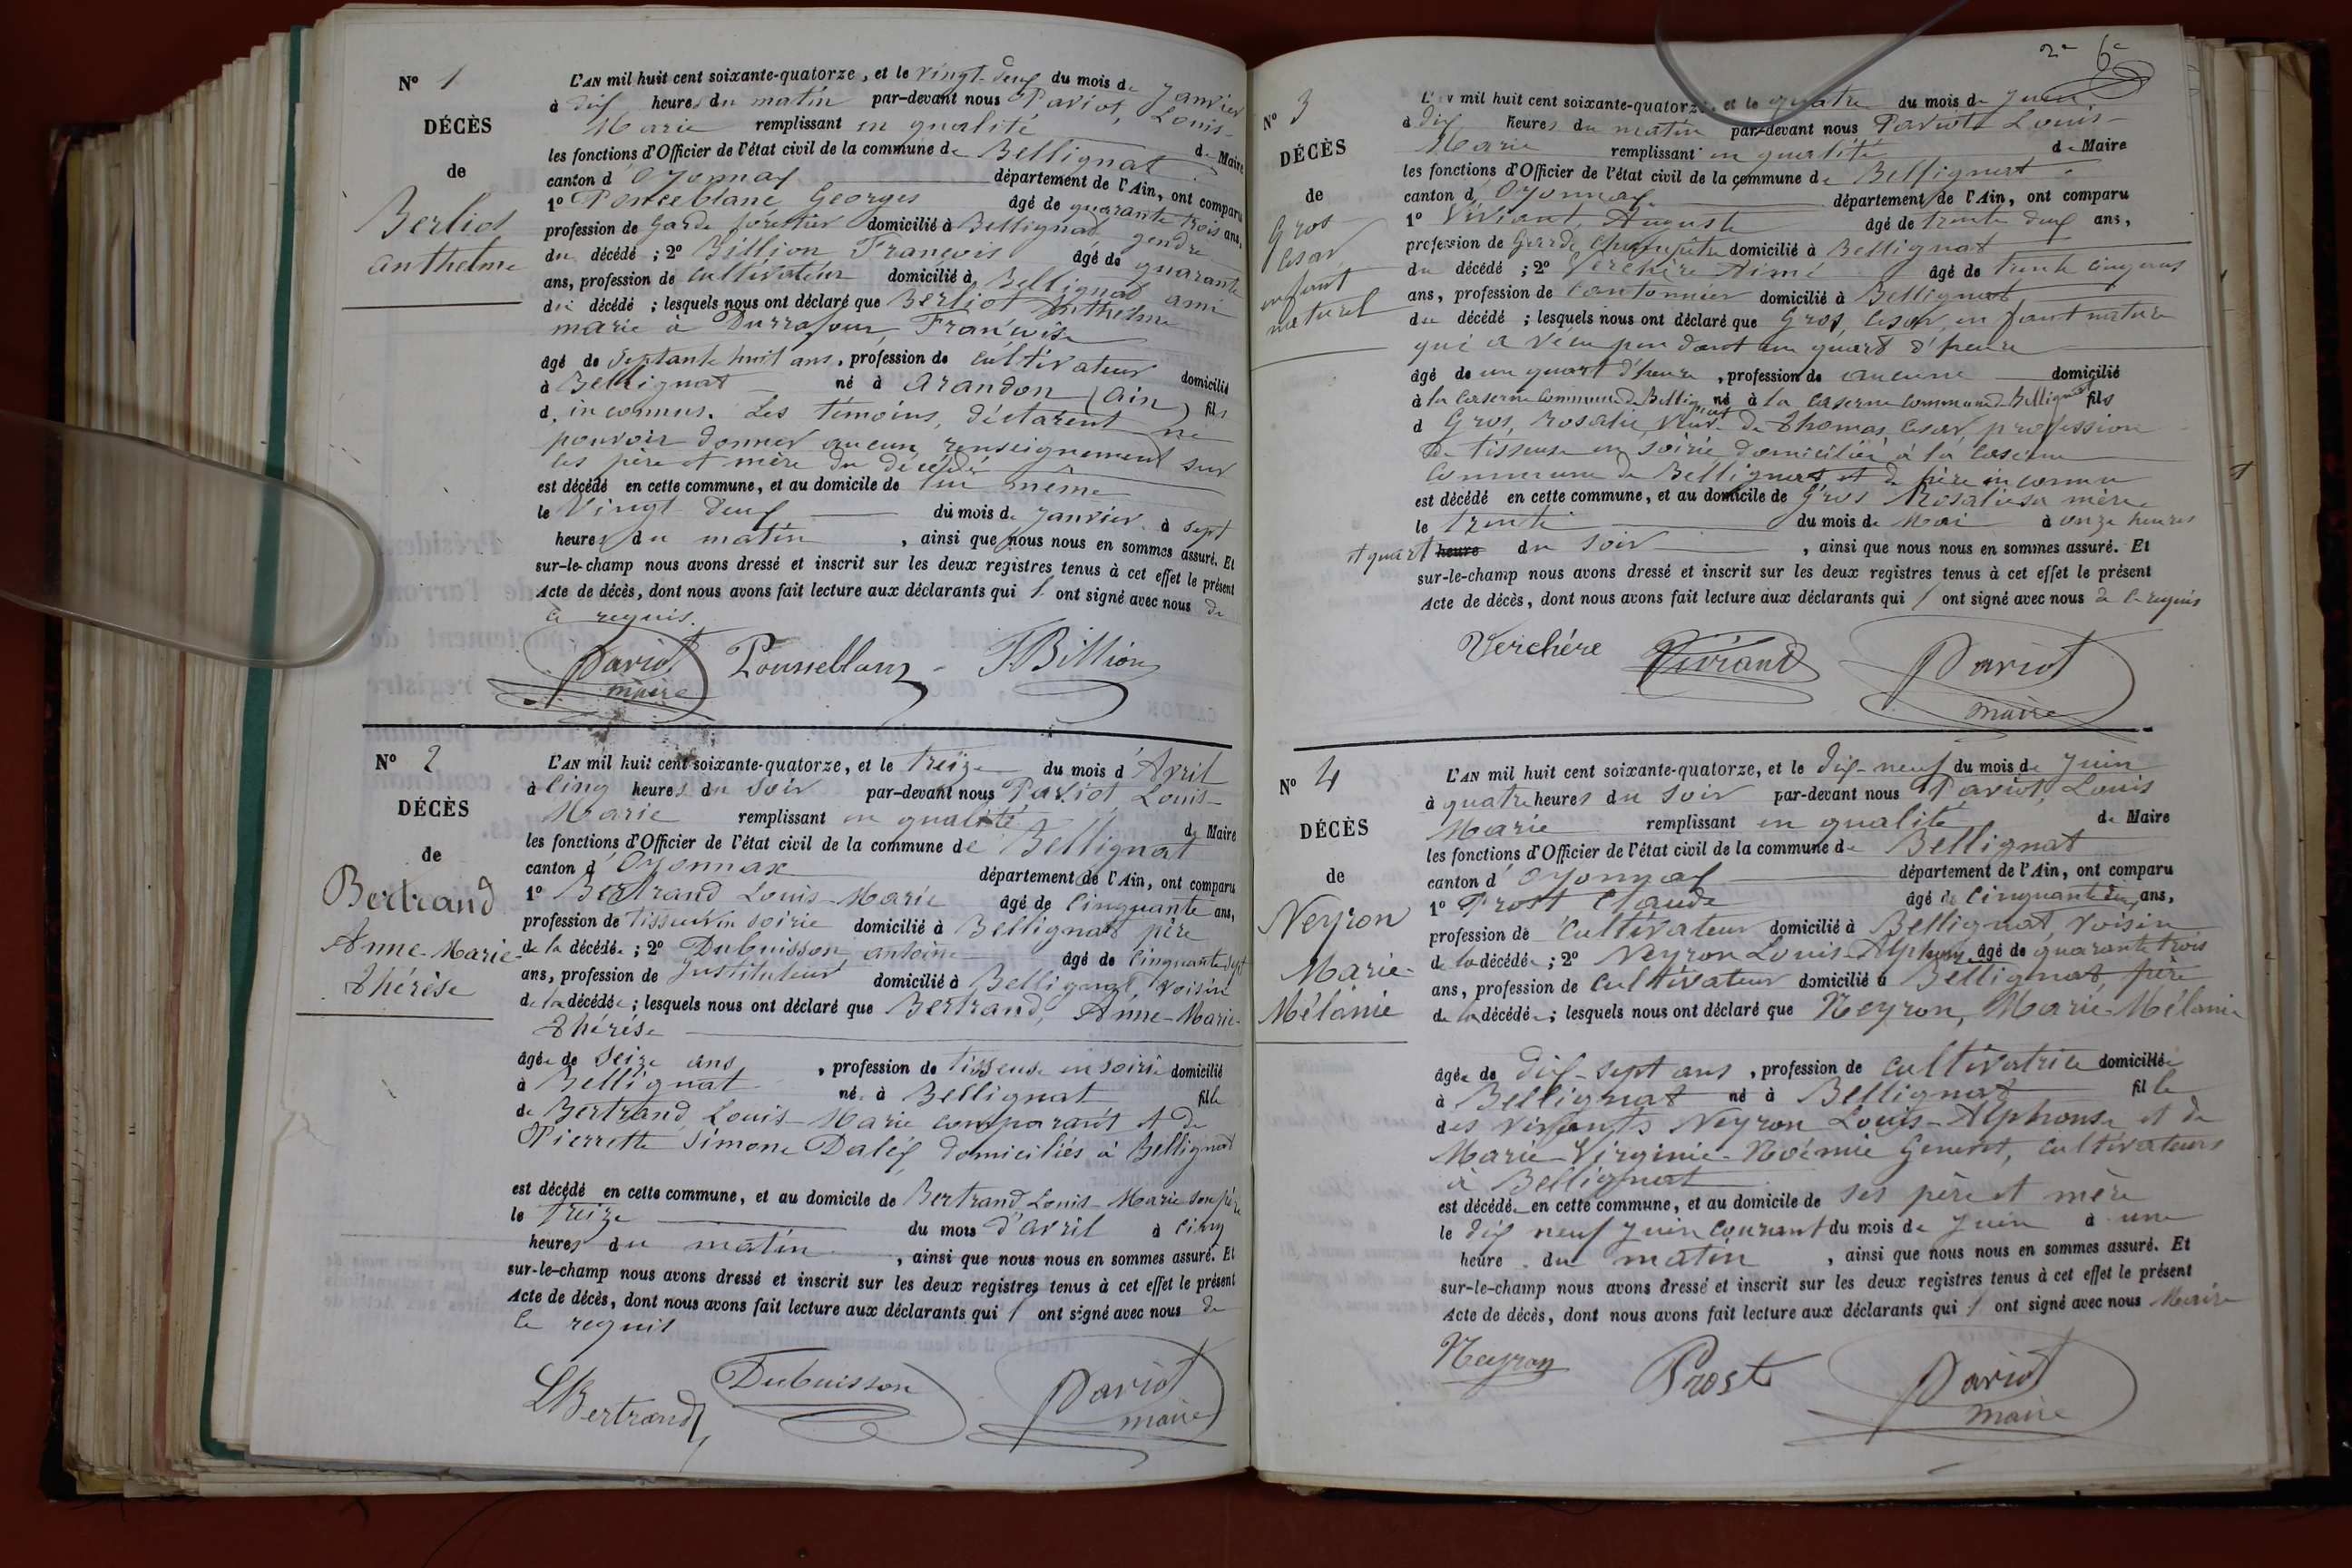 N° 1
DÉCÈS
de
Berliot
anthelme
L'AN mil huit cent soixante-quatorze, et le vingt-deux du mois de Janvier
à dix heures du matin par-devant nous Pariot, Louis-
Marie remplissant en qualité de Maire
les fonctions d'Officier de l'état civil de la commune de Bellignat
canton d'Oyonnax département de l'Ain, ont comparu
1° Ponceblanc Georges âgé de quarante trois ans,
profession de Garde forestier domicilié à Bellignat gendre
du décédé ; 2° Billion François âgé de quarante
ans, profession de cultivateur domicilié à Bellignat ami
du décédé ; lesquels nous ont déclaré que Berliot Anthelme
marié à Durrafour, Françoise
âgé de septante huit ans, profession de cultivateur domicilié
à Bellignat né à Arandon (Ain) fils
d. inconnus. Les témoins, déclarent ne
pouvoir donner aucun renseignement sur
les père et mère du décédé
est décédé en cette commune, et au domicile de lui même
le Vingt deux du mois de Janvier à sept
heures du matin, ainsi que nous nous en sommes assuré. Et
sur-le-champ nous avons dressé et inscrit sur les deux registres tenus à cet effet le présent
Acte de décès, dont nous avons fait lecture aux déclarants qui ont signé avec nous de
ce requis.
Pariot maire Pousseblanc F. Billion
N° 2
DÉCÈS
de
Bertrand
Anne-Marie-
Thérèse
L'AN mil huit cent soixante-quatorze, et le treize du mois d'Avril
à cinq heures du soir par-devant nous Pariot Louis-
Marie remplissant en qualité de Maire
les fonctions d'Officier de l'état civil de la commune de Bellignat
canton d'Oyonnax département de l'Ain, ont comparu
1° Bertrand Louis-Marie âgé de cinquante ans,
profession de tisseur en soirie domicilié à Bellignat père
de la décédée ; 2° Dubuisson antoine âgé de cinquante sept
ans, profession de Instituteur domicilié à Bellignat, voisin
de la décédée ; lesquels nous ont déclaré que Bertrand, Anne-Marie-
Thérèse
âgée de seize ans, profession de tisseuse en soirie domicilié
à Bellignat née à Bellignat fille
de Bertrand Louis-Marie comparant et de
Pierrette Simone Daléx domiciliés à Bellignat
est décédé en cette commune, et au domicile de Bertrand Louis-Marie son père
le treize du mois d'avril à cinq
heures du matin, ainsi que nous nous en sommes assuré. Et
sur-le-champ nous avons dressé et inscrit sur les deux registres tenus à cet effet le présent
Acte de décès, dont nous avons fait lecture aux déclarants qui ont signé avec nous de
ce requis
LBertrand Dubuisson Pariot maire
2e 6e
N° 3
DÉCÈS
de
Gros
Cesar
enfant
naturel
L'AN mil huit cent soixante-quatorze, et le quatre du mois de Juin
à dix heures du matin par-devant nous Pariot Louis-
Marie remplissant en qualité de Maire
les fonctions d'Officier de l'état civil de la commune de Bellignat
canton d'Oyonnax département de l'Ain, ont comparu
1° Viviant, Auguste âgé de trente deux ans,
profession de Garde Champêtre domicilié à Bellignat
du décédé ; 2° Verchère Aimé âgé de trente cinq ans
ans, profession de Cantonnier domicilié à Bellignat
du décédé ; lesquels nous ont déclaré que Gros, Cesar, enfant naturel
qui a vécu pendant un quart d'heure
âgé de un quart d'heure, profession de aucune domicilié
à la Caserne Commune de Bellignat né à la Caserne Commune de Bellignat fils
d Gros, Rosalie, veuve de Thomas Cesar, profession
de tisseuse en soirie domiciliée à la Caserne
Commune de Bellignat et de père inconnu
est décédé en cette commune, et au domicile de Gros Rosalie sa mère
le trente du mois de Mai à onze heures
et quart heure du soir, ainsi que nous nous en sommes assuré. Et
sur-le-champ nous avons dressé et inscrit sur les deux registres tenus à cet effet le présent
Acte de décès, dont nous avons fait lecture aux déclarants qui ont signé avec nous de ce requis
Verchére Viviand Pariot maire
N° 4
DÉCÈS
de
Neyron
Marie-
Mélanie
L'AN mil huit cent soixante-quatorze, et le dix-neuf du mois de Juin
à quatre heures du soir par-devant nous Pariot, Louis
Marie remplissant en qualité de Maire
les fonctions d'Officier de l'état civil de la commune de Bellignat
canton d'Oyonnax département de l'Ain, ont comparu
1° Prost Claude âgé de cinquante ans,
profession de Cultivateur domicilié à Bellignat, voisin
de la décédée ; 2° Neyron Louis-Alphonse, âgé de quarante trois
ans, profession de Cultivateur domicilié à Bellignat, père
de la décédée ; lesquels nous ont déclaré que Neyron, Marie-Mélanie
âgée de dix-sept ans, profession de cultivatrice domiciliée
à Bellignat né à Bellignat fille
des vivants Neyron Louis-Alphonse et de
Marie-Virginie-Noémie Genevet, cultivateurs
à Bellignat
est décédée en cette commune, et au domicile de ses père et mère
le dix neuf Juin courant du mois de Juin à une
heure du matin, ainsi que nous nous en sommes assuré. Et
sur-le-champ nous avons dressé et inscrit sur les deux registres tenus à cet effet le présent
Acte de décès, dont nous avons fait lecture aux déclarants qui ont signé avec nous Maire
Neyron Prost Pariot maire